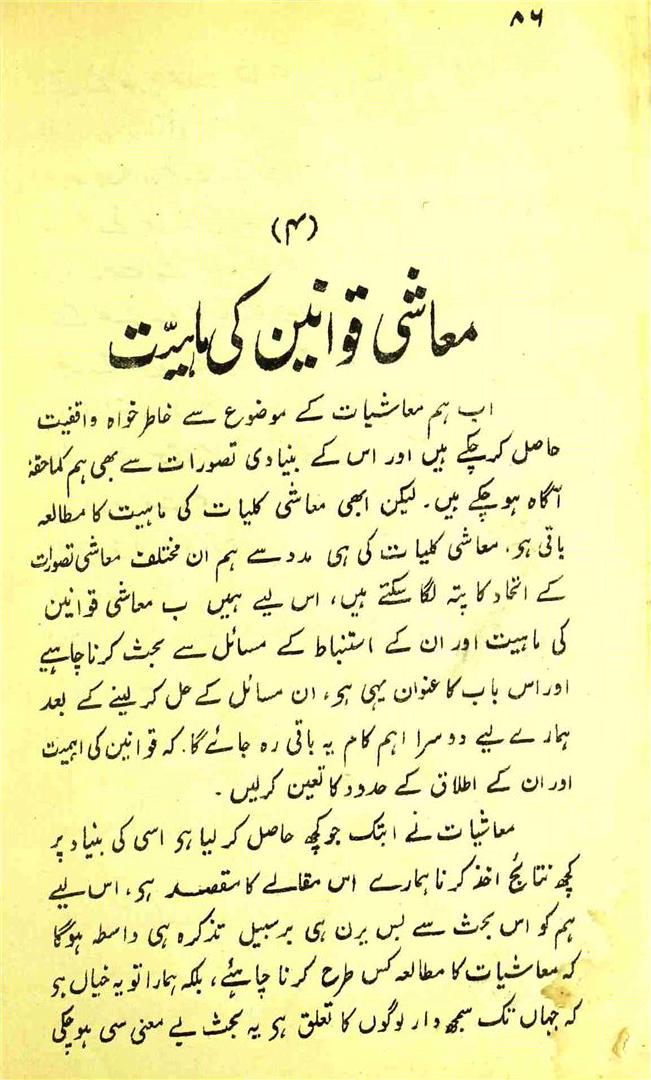 ۸۶
(۴)
معاشی قوانین کی ماہیّت
اب ہم معاشیات کے موضوع سے خاطر خواہ واقفیت
حاصل کر چکے ہیں اور اس کے بنیادی تصورات سے بھی ہم کماحقہٗ
آگاہ ہو چکے ہیں۔ لیکن ابھی معاشی کلیات کی ماہیت کا مطالعہ
باقی ہو، معاشی کلیات کی ہی مدد سے ہم ان مختلف معاشی تصورات
کے اتحاد کا پتہ لگا سکتے ہیں، اس لیے ہمیں ب معاشی قوانین
کی ماہیت اور ان کے استنباط کے مسائل سے بحث کرنا چاہیے
اور اس باب کا عنوان یہی ہو، ان مسائل کے حل کر لینے کے بعد
ہمارے لیے دوسرا اہم کام یہ باقی رہ جائے گا۔ کہ قوانین کی اہمیت
اور ان کے اطلاق کے حدود کا تعین کرلیں۔
معاشیات نے ابتک جو کچھ حاصل کر لیا ہو اسی کی بنیاد پر
کچھ نتائج اخذ کرنا ہمارے اس مقالے کا مقصد ہو، اس لیے
ہم کو اس بحث سے بس یرن ہی برسبیل تذکرہ ہی واسطہ ہوگا
کہ معاشیات کا مطالعہ کس طرح کرنا چاہئے، بلکہ ہمارا تو یہ خیال ہو
کہ جہاں تک سمجھ دار لوگوں کا تعلق ہو یہ بحث بے معنی سی ہو چکی